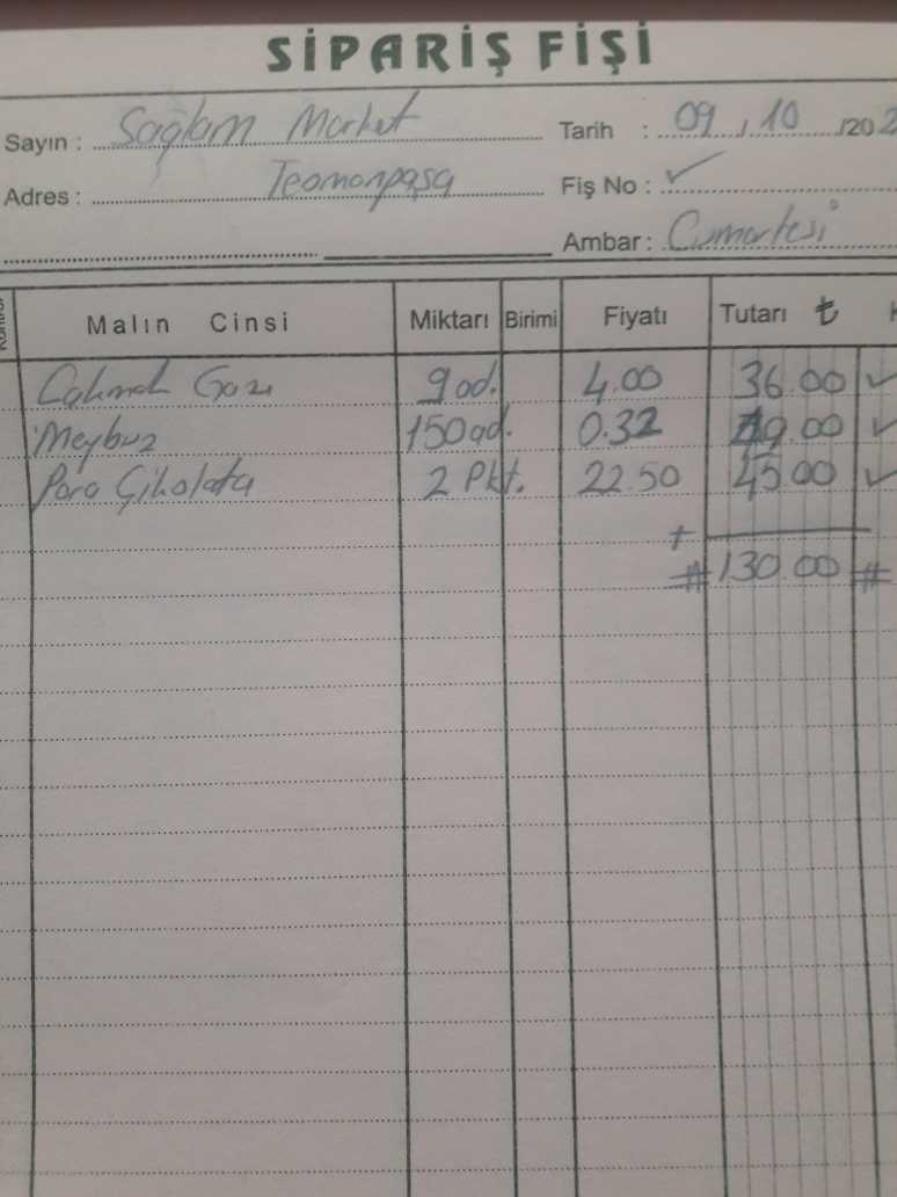 SİPARİŞ FİŞİ
Sayın : Sağlam Market Tarih : 09 / 10 /202
Adres : Teomanpaşa Fiş No : ✓
Ambar : Cumartesi
Malın Cinsi Miktarı Birimi Fiyatı Tutarı ₺
Çakmak Gazı 9 ad. 4.00 36.00 ✓
Meybuz 150 ad. 0.32 49.00 ✓
Para Çikolata 2 Pkt. 22.50 45.00 ✓
+
# 130.00 #